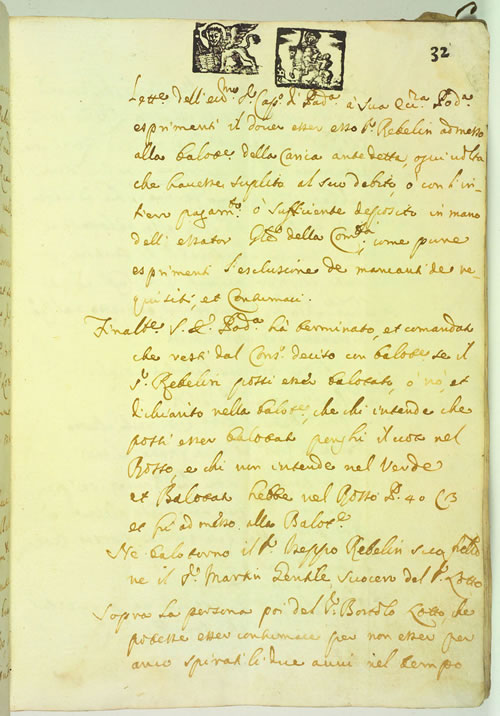 32
Lett.e dell'ecc.mo S.r Cap.o di Pad.a à sua Ecc.za Pod.a
esprimenti il dover esser esso S.r Rebelin admesso
alla balot.e della Carica antedetta, ogni volta
che havesse suplito al suo debito ò con l'in-
tiero pagam.to ò sufficiente deposito in mano
dell'essator della Com.tà come pure
esprimenti l'esclusione de mancanti de re-
quisiti, et Contumaci.
Final.te S. E. Pod.a hà terminato, et comandat
che resti dal Cons.o deciso con balot.e se il
S.r Rebelin possi esser balotato, ò nò, et
dichiarito nella balot.e, che chi intende che
possi esser balotat ponghi il voto nel
Rosso, e chi non intende nel Verde
et Balotat hebbe nel Rosso P. 40 C 3
et fù admesso alla Balot.e
Ne balotorno il S.r Iseppo Rebelin suo
ne il S.r Martin Gentile, suocero del S.r Zotto
Sopra la persona poi del S.r Bortolo Zotto, che
potesse esser contumace per non esser per
anco spirati li due anni nel tempo